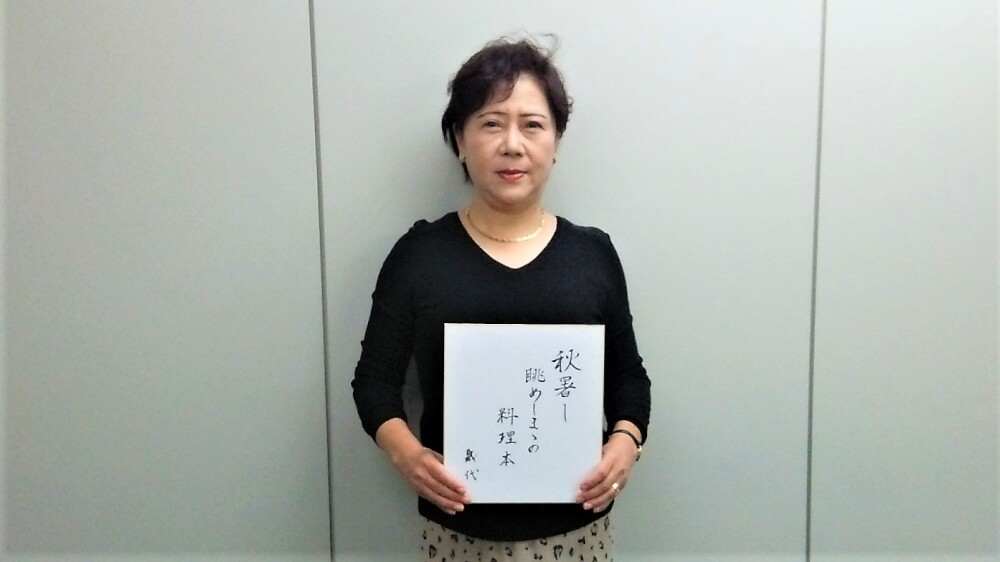 秋暑し
眺めしまゝの
料理本